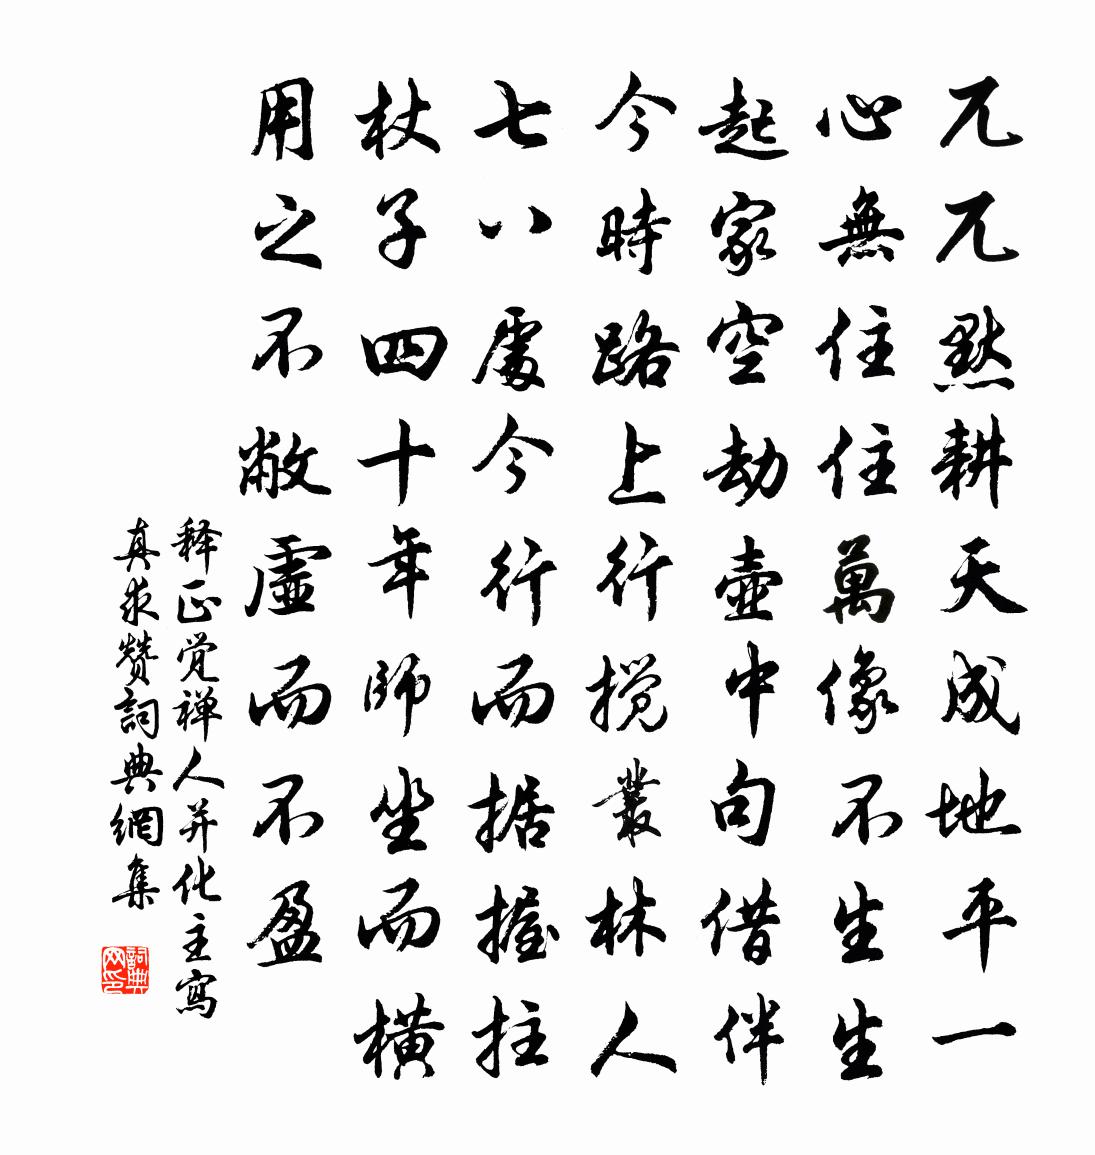 兀兀默耕天成地平一
心無住住萬像不生生
起家空劫壺中句借伴
今時路上行搅叢林人
七八處今行而据握拄
杖子四十年師坐而横
用之不敝虛而不盈
释正觉禅人并化主寫
真求赞詞典網集
詞典网印